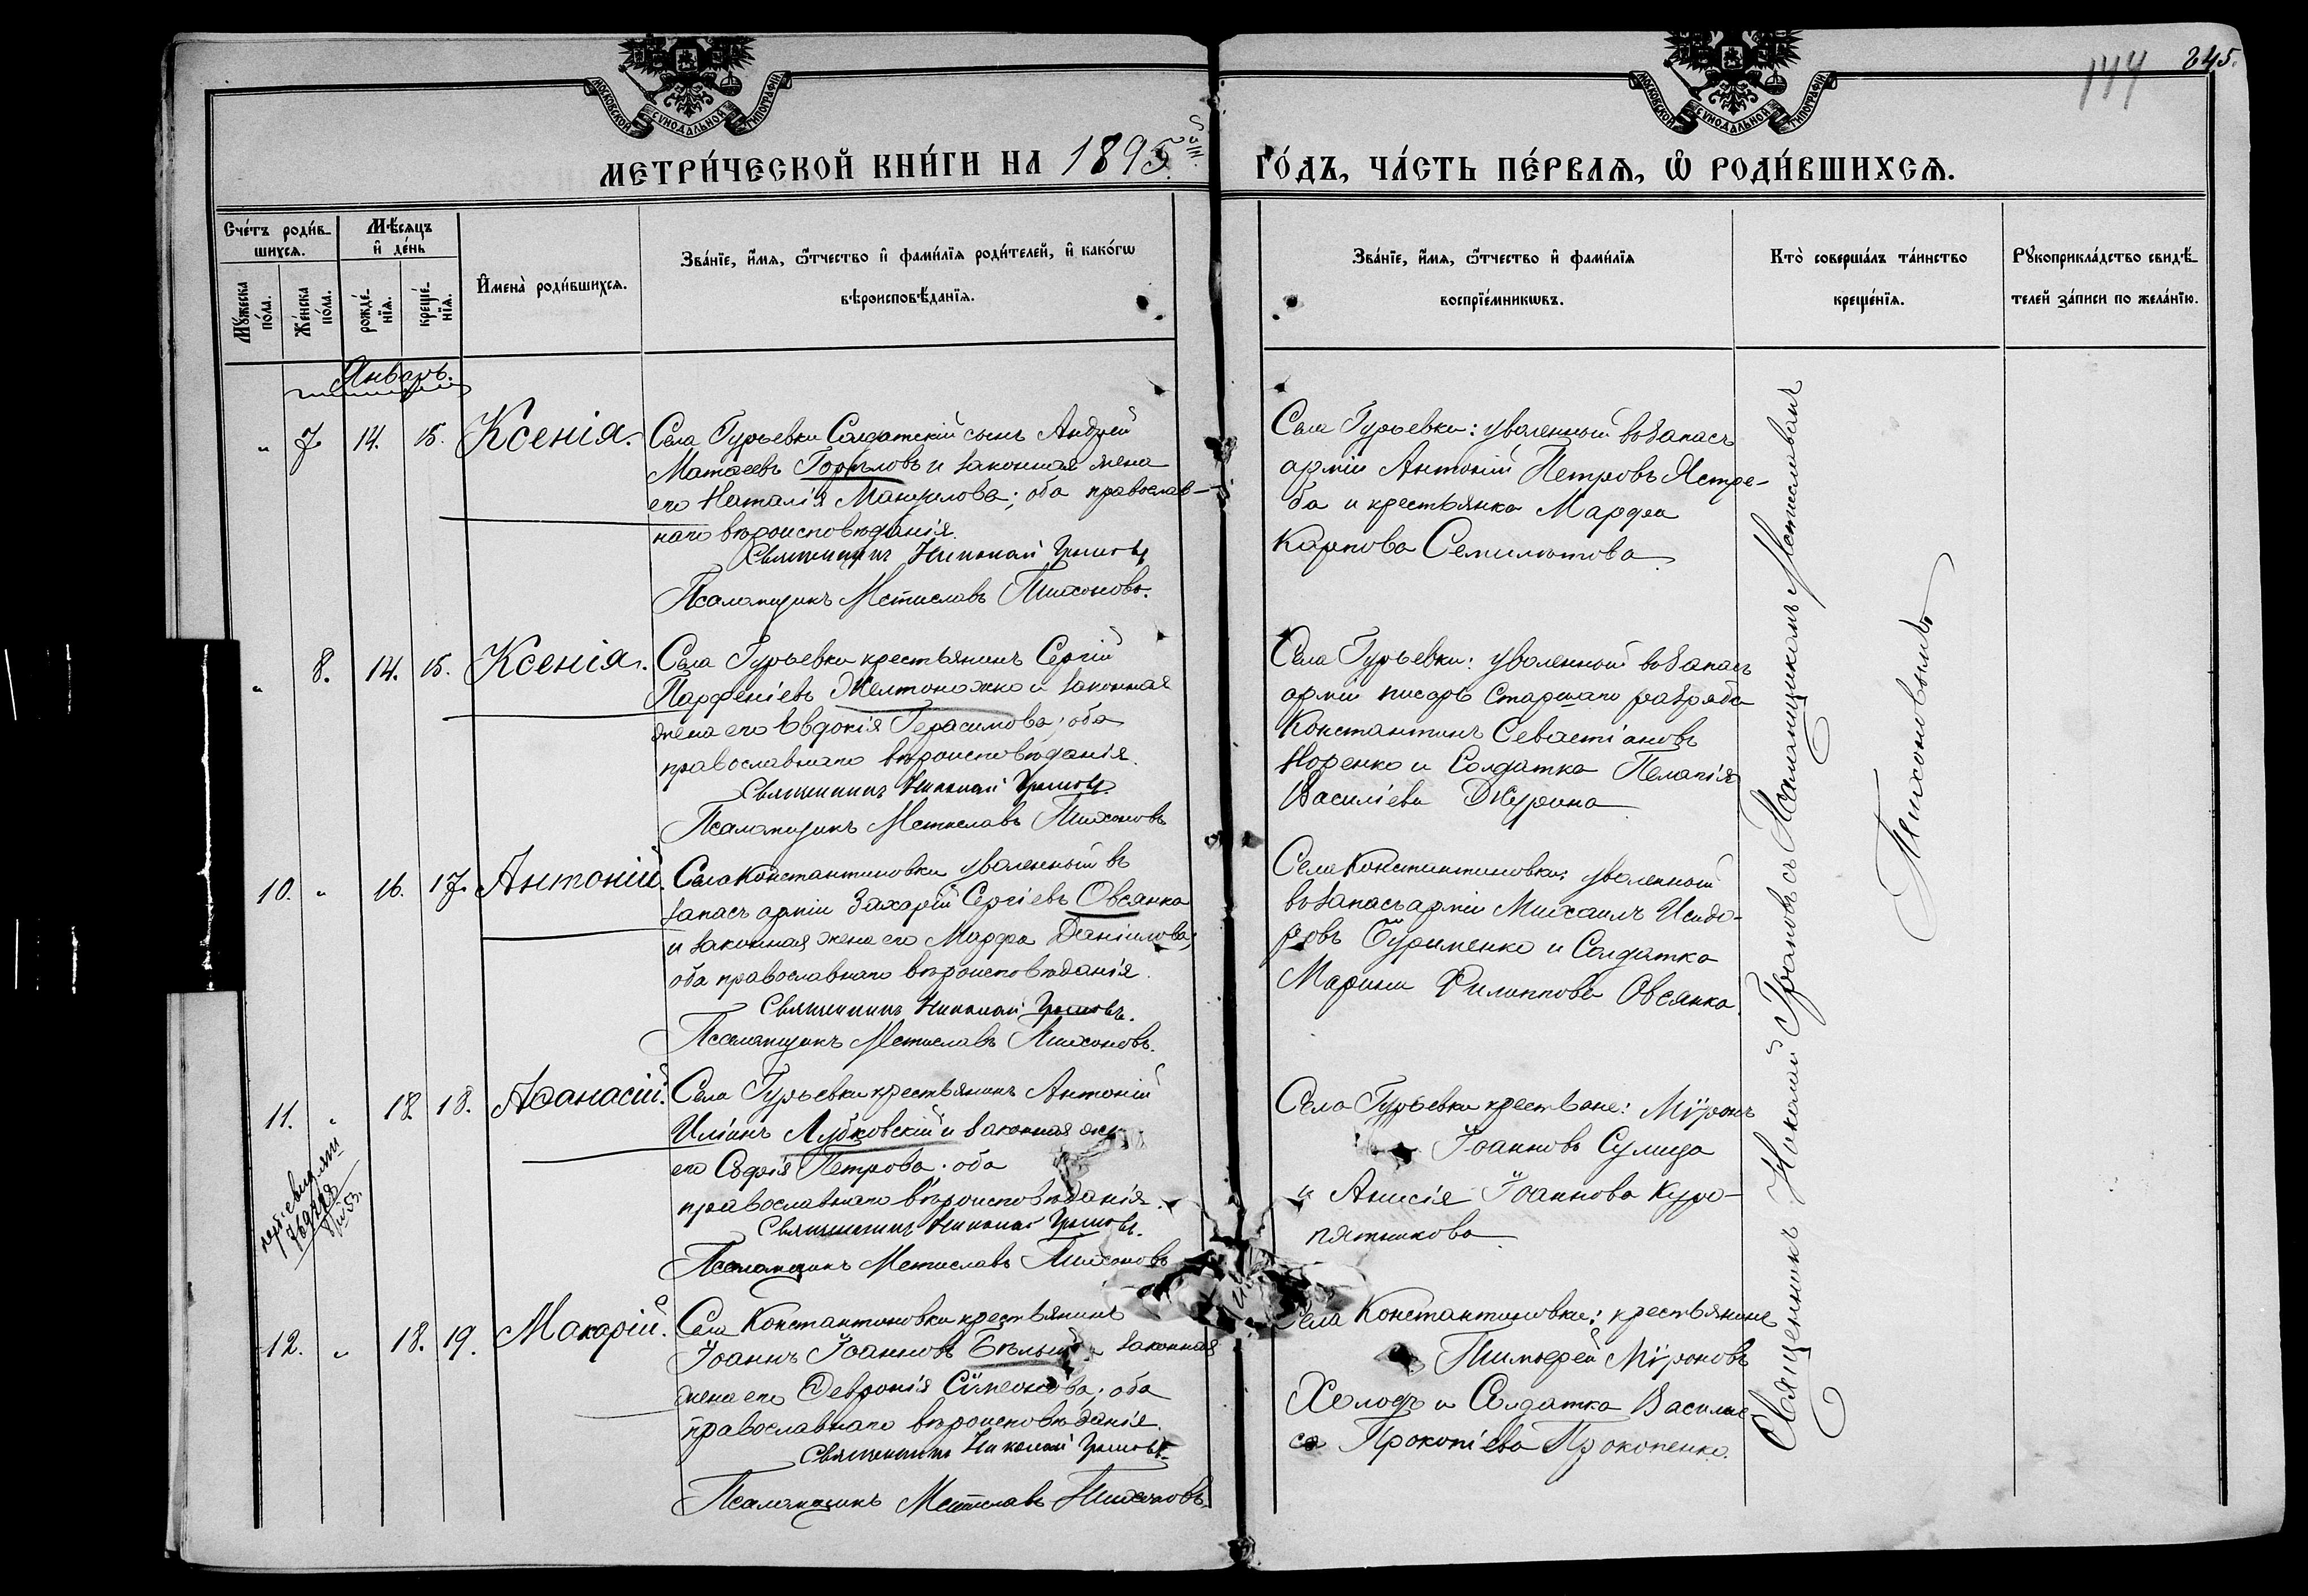 МОСКОВСКОЙ СѴНОДАЛЬНОЙ ТИПОГРАФІИ
МОСКОВСКОЙ СѴНОДАЛЬНОЙ ТИПОГРАФІИ
144 245.
МЕТРИ́ЧЕСКОЙ КНИ́ГИ НА 1895й ГО́ДЪ, ЧА́СТЬ ПЕ́РВАѦ, Ѿ РОДИ́ВШИХСѦ.
Сче́тъ роди́в-
шихся.
Мѣ́сяцъ
и҆ де́нь
Мꙋ́жеска по́ла.
Же́нска по́ла.
рожде́-
нїя.
креще́-
нїя.
И҆мена̀ роди́вшихся.
Зва́нїе, и҆́мя, ѻ҆́тчество и҆ фами́лїя роди́телей, и҆ како́гѡ
вѣроисповѣ́данїя.
Зва́нїе, и҆́мя, ѻ҆́тчество и҆ фами́лїя
воспрїе́мникѡвъ.
Кто̀ соверша́лъ та́инство
креще́нїя.
Рꙋкоприкла́дство свидѣ́-
телей за́писи по жела́нїю.
Январь.
" 7. 14. 15. Ксенія.
Села Гурьевки Солдатскій сынъ Андрей
Матѳеевъ Горѣловъ и законная жена
его Наталія Мануилова; оба православ-
наго вѣроисповѣданія.
Священникъ Николай
Псаломщикъ Мстиславъ Тихоновъ.
Села Гурьевки: уволенный в запасъ
арміи Антоній Петровъ Ястре-
ба и крестьянка Марфа
Карпова Семилютова
" 8. 14. 15. Ксенія.
Села Гурьевки крестьянинъ Сергій
Парфеніевъ Желтоножко и законная
жена его Евдокія Герасимова; оба
православнаго вѣроисповѣданія.
Священникъ Николай
Псаломщикъ Мстиславъ Тихоновъ
Села Гурьевки: уволенный в запасъ
арміи писарь старшаго разряда
Константинъ Севастіановъ
Норенко и Солдатка Пелагія
Василіева Джурина
10. " 16. 17. Антоній.
Села Константиновки уволенный въ
запасъ арміи Захарій Сергіевъ Овсянко
и законная жена его Марфа Даніилова;
оба православнаго вѣроисповѣданія.
Священникъ Николай
Псаломщикъ Мстиславъ Тихоновъ.
Села Константиновки: уволенный
в запасъ арміи Михаилъ Исидо-
ровъ Буряменко и Солдатка
Марина Филиппова Овсянко.
11. " 18. 18. Аѳанасій.
Села Гурьевки крестьянинъ Антоній
Иліинъ Лубковскій и законная
его Софія Петрова; оба
православнаго вѣроисповѣданія.
Священникъ Николай
Псаломщикъ Мстиславъ Тихоновъ
Села Гурьевки крестьяне: Мѵронъ
Іоанновъ Сулица
и Анисія Іоаннова Куро-
пятникова
12. " 18. 19. Макарій.
Села Константиновки крестьянинъ
Іоаннъ Іоанновъ Бѣлый и законная
жена его Февронія Сѵмеонова; оба
православнаго вѣроисповѣданія.
Священникъ Николай
Псаломщикъ Мстиславъ Тихоновъ
Села Константиновки: крестьянинъ
Тимофей Мѵроновъ
Холодъ и Солдатка Васили-
са Прокопіева Прокопенко.
Священникъ Николай съ Псаломщикомъ Мстиславомъ
Тихоновымъ